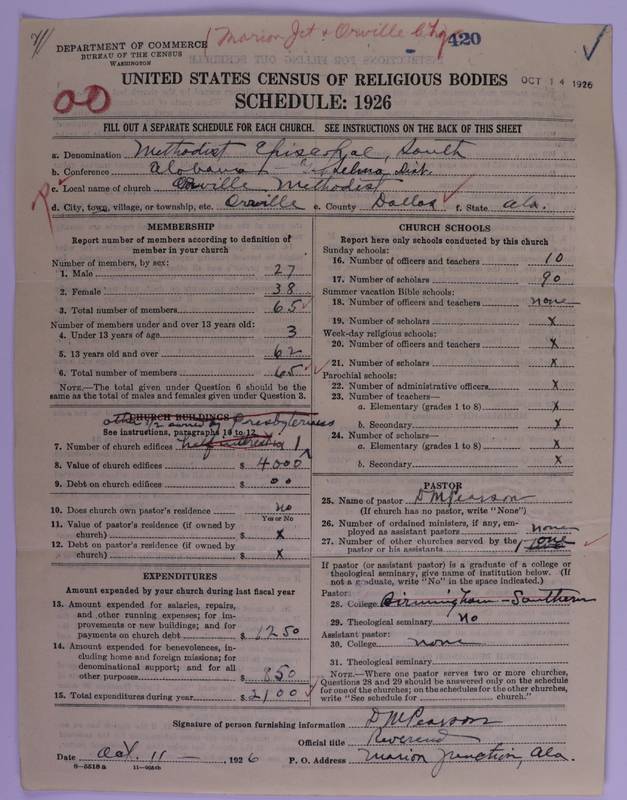 (Marion Jct & Orville Chg.
420
DEPARTMENT OF COMMERCE
BUREAU OF THE CENSUS
WASHINGTON
UNITED STATES CENSUS OF RELIGIOUS BODIES
OCT 14 1926
SCHEDULE: 1926
FILL OUT A SEPARATE SCHEDULE FOR EACH CHURCH. SEE INSTRUCTIONS ON THE BACK OF THIS SHEET
a. Denomination Methodist Episcopal, South
b. Conference Alabama Selma Dist.
c. Local name of church Orville Methodist
d. City, town, village, or township, etc. Orville e. County Dallas f. State Ala.
MEMBERSHIP
Report number of members according to definition of
member in your church
Number of members, by sex:
1. Male 27
2. Female 38
3. Total number of members 65
Number of members under and over 13 years old:
4. Under 13 years of age 3
5. 13 years old and over 62
6. Total number of members 65
NOTE.—The total given under Question 6 should be the
same as the total of males and females given under Question 3.
CHURCH BUILDINGS
other 1/2 owned by Presbyterians
See instructions, paragraphs 10 to 12
7. Number of church edifices half interest in 1
8. Value of church edifices $ 4000
9. Debt on church edifices $ 00
10. Does church own pastor's residence No
Yes or No
11. Value of pastor's residence (if owned by
church) $ X
12. Debt on pastor's residence (if owned by
church) $ X
EXPENDITURES
Amount expended by your church during last fiscal year
13. Amount expended for salaries, repairs,
and other running expenses; for im-
provements or new buildings; and for
payments on church debt $ 1250
14. Amount expended for benevolences, in-
cluding home and foreign missions; for
denominational support; and for all
other purposes $ 850
15. Total expenditures during year $ 2100
CHURCH SCHOOLS
Report here only schools conducted by this church
Sunday schools:
16. Number of officers and teachers 10
17. Number of scholars 90
Summer vacation Bible schools:
18. Number of officers and teachers none
19. Number of scholars X
Week-day religious schools:
20. Number of officers and teachers X
21. Number of scholars X
Parochial schools:
22. Number of administrative officers X
23. Number of teachers—
a. Elementary (grades 1 to 8) X
b. Secondary X
24. Number of scholars—
a. Elementary (grades 1 to 8) X
b. Secondary X
PASTOR
25. Name of pastor D M Pearson
(If church has no pastor, write "None")
26. Number of ordained ministers, if any, em-
ployed as assistant pastors none
27. Number of other churches served by the
pastor or his assistants 1
If pastor (or assistant pastor) is a graduate of a college or
theological seminary, give name of institution below. (If
not a graduate, write "No" in the space indicated.)
Pastor:
28. College Birmingham-Southern
29. Theological seminary No
Assistant pastor:
30. College none
31. Theological seminary
NOTE.—Where one pastor serves two or more churches,
Questions 28 and 29 should be answered only on the schedule
for one of the churches; on the schedules for the other churches,
write "See schedule for church."
Signature of person furnishing information D M Pearson
Official title Reverend
Date Oct. 11 , 1926 P. O. Address Marion Junction, Ala.
8—5518 a